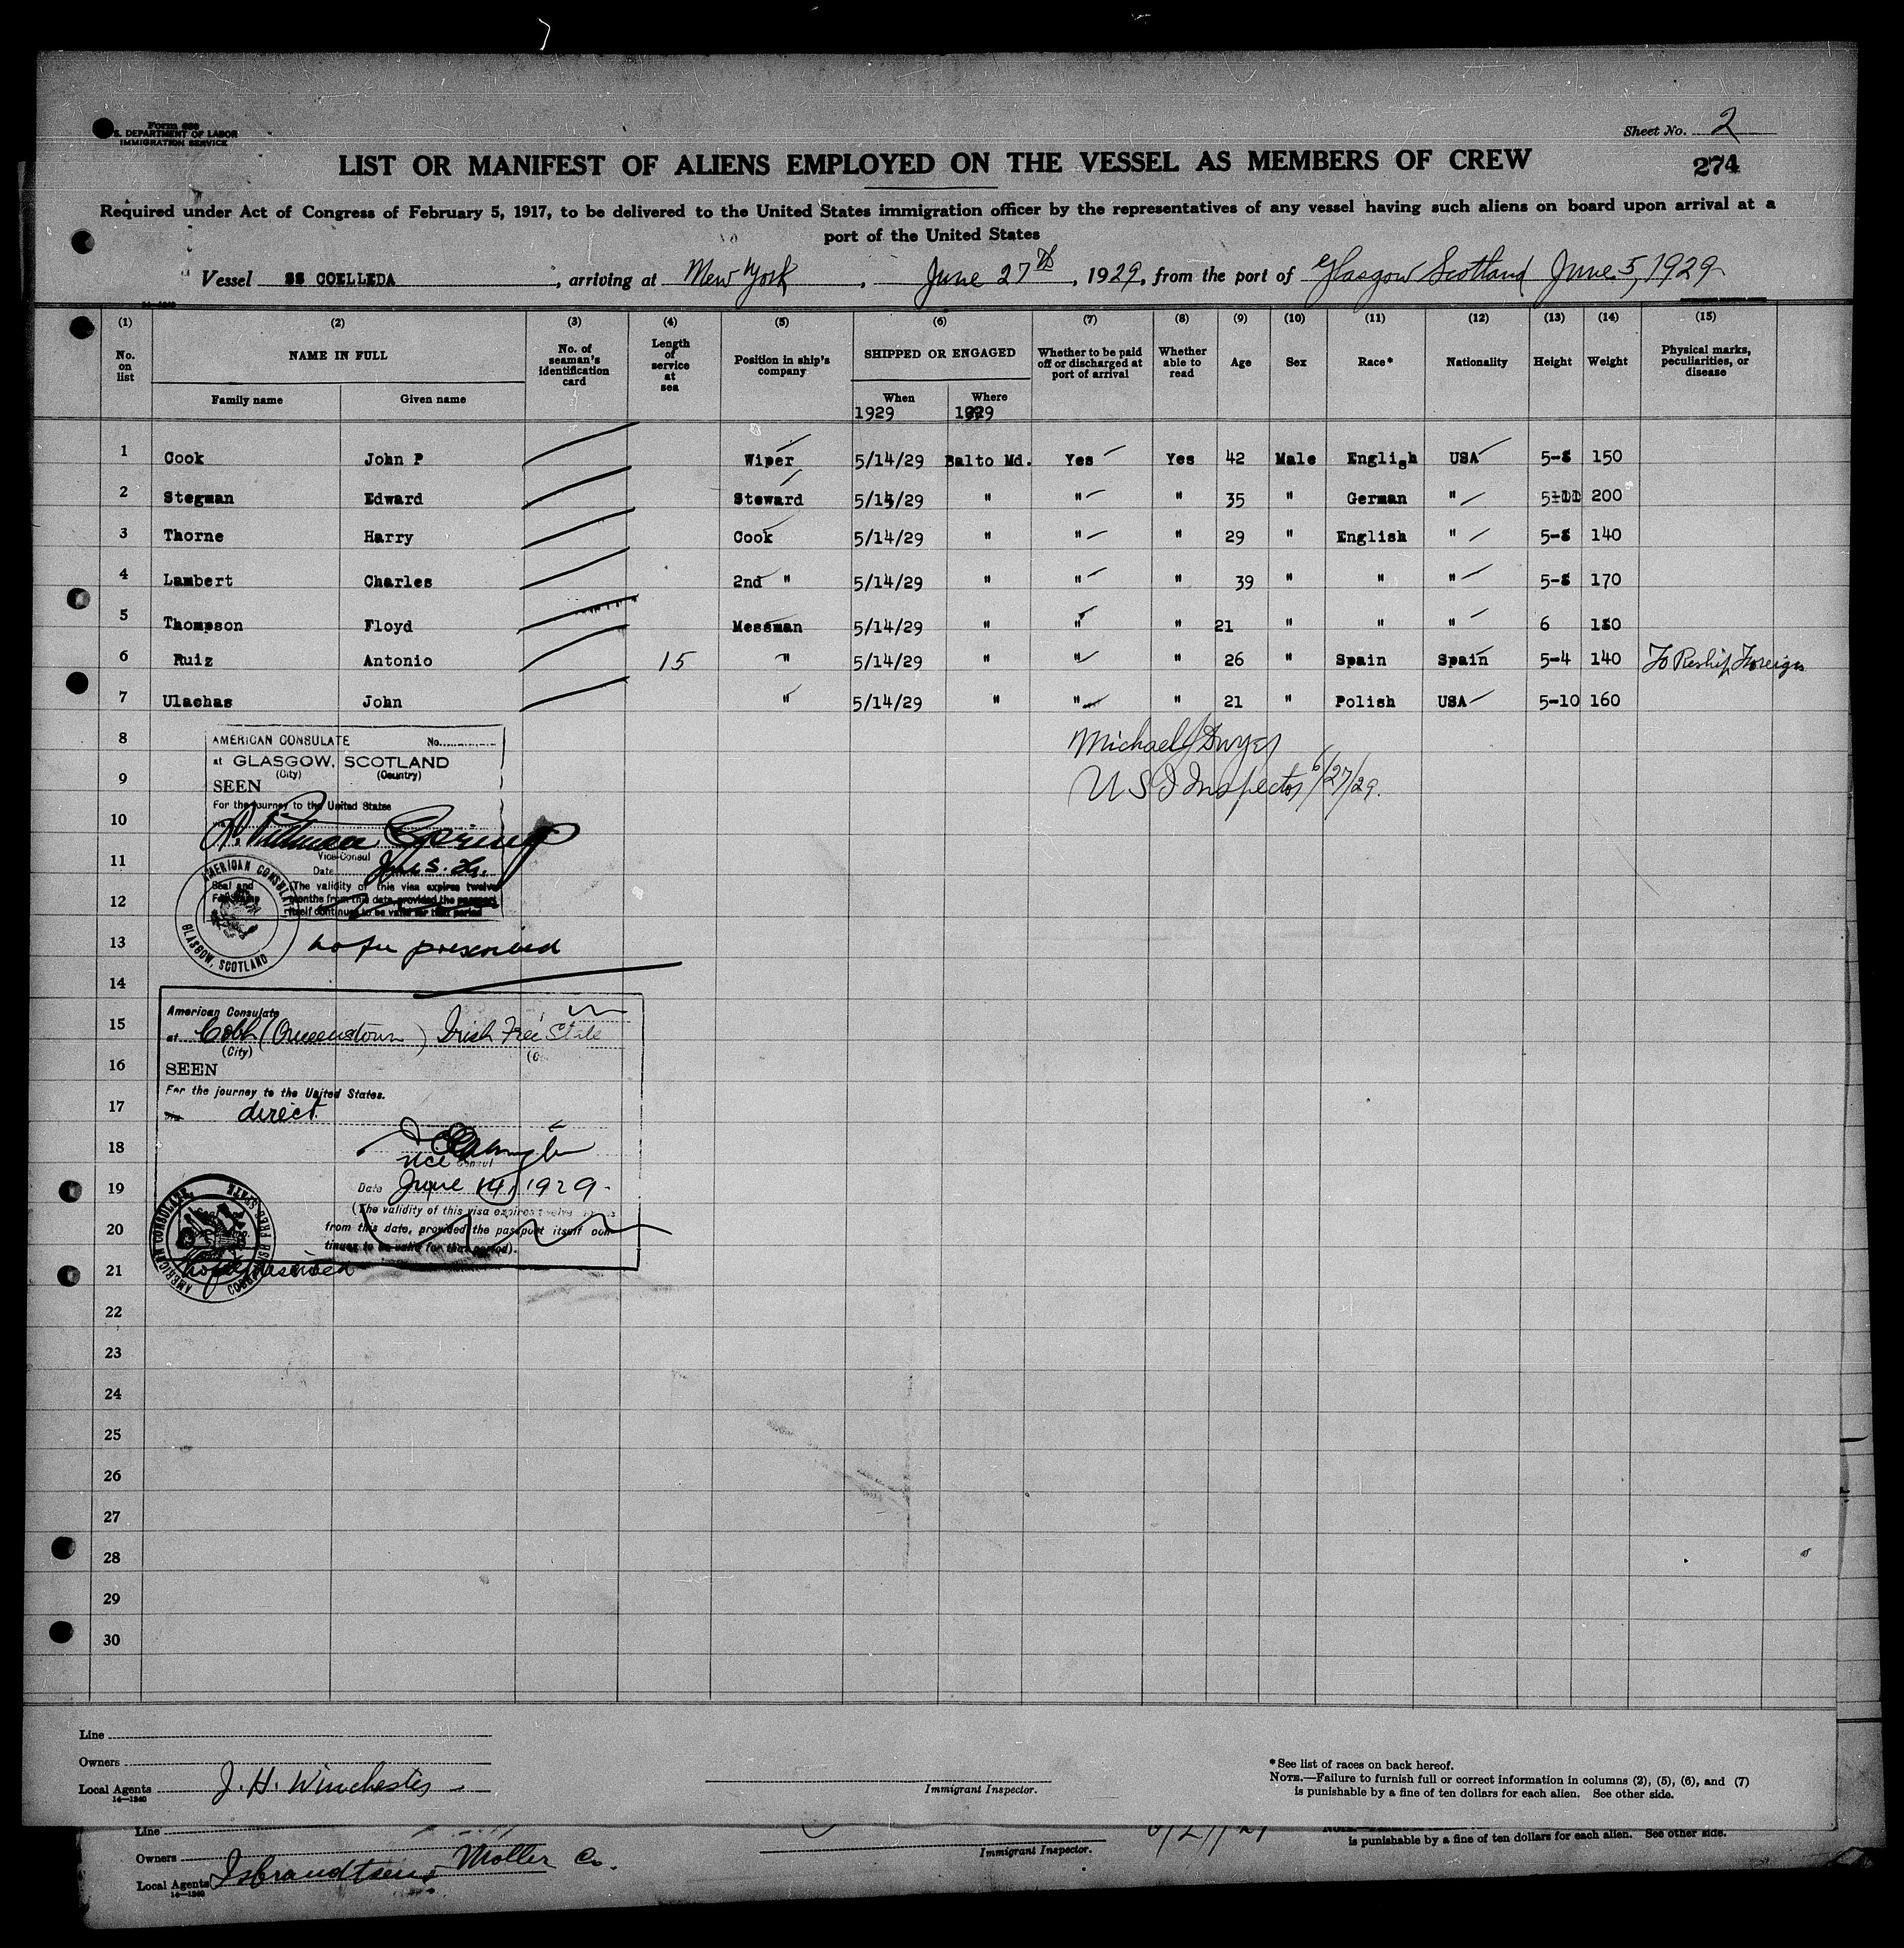 Form 680
U. S. DEPARTMENT OF LABOR
IMMIGRATION SERVICE
Sheet No. 2
274
LIST OR MANIFEST OF ALIENS EMPLOYED ON THE VESSEL AS MEMBERS OF CREW
Required under Act of Congress of February 5, 1917, to be delivered to the United States immigration officer by the representatives of any vessel having such aliens on board upon arrival at a
port of the United States
Vessel SS COELLEDA, arriving at New York, June 27th, 1929, from the port of Glasgow Scotland June 5, 1929
14-1240
(1) (2) (3) (4) (5) (6) (7) (8) (9) (10) (11) (12) (13) (14) (15)
No. on list NAME IN FULL No. of seaman's identification card Length of service at sea Position in ship's company SHIPPED OR ENGAGED Whether to be paid off or discharged at port of arrival Whether able to read Age Sex Race* Nationality Height Weight Physical marks, peculiarities, or disease
Family name Given name When Where
1929 1929
1 Cook John P Wiper 5/14/29 Balto Md. Yes Yes 42 Male English USA 5-8 150
2 Stegman Edward Steward 5/14/29 " " " 35 " German " 5-11 200
3 Thorne Harry Cook 5/14/29 " " " 29 " English " 5-8 140
4 Lambert Charles 2nd " 5/14/29 " " " 39 " " " 5-8 170
5 Thompson Floyd Messman 5/14/29 " " " 21 " " " 6 180
6 Ruiz Antonio 15 " 5/14/29 " " " 26 " Spain Spain 5-4 140 To Reship Foreign
7 Ulachas John " 5/14/29 " " " 21 " Polish USA 5-10 160
8
AMERICAN CONSULATE No.
Michael J Dwyer
at GLASGOW, SCOTLAND
(City) (Country)
9
SEEN
U S I Inspector 6/27/29.
For the journey to the United States
via
10
Vice-Consul
11
Date June 5. 29.
Seal and Fee Stamp
(The validity of this visa expires twelve
12
months from this date, provided the passport
itself continues to be valid for that period
AMERICAN CONSULATE GLASGOW, SCOTLAND
13
no fee prescribed
14
American Consulate
15
at Cobh (Queenstown) Irish Free State
(City)
16
SEEN
For the journey to the United States.
17
via direct
18
Vice Consul
19
Date June 14, 1929.
(The validity of this visa expires twelve months
20
from this date, provided the passport itself con-
tinues to be valid for that period).
21
no fee prescribed
AMERICAN CONSULATE,
22
23
24
25
26
27
28
29
30
Line
Owners
Local Agents J. H. Winchester
14-1240
Immigrant Inspector.
*See list of races on back hereof.
NOTE.—Failure to furnish full or correct information in columns (2), (5), (6), and (7)
is punishable by a fine of ten dollars for each alien. See other side.
Line
Owners
Local Agents Isbrandtsen Moller Co.
14-1240
Immigrant Inspector.
is punishable by a fine of ten dollars for each alien. See other side.